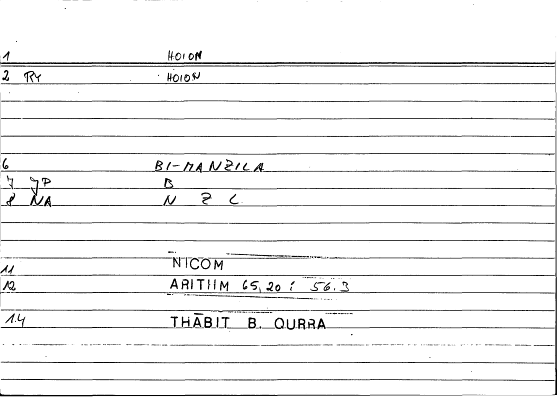 1 HOION
2 RY HOION
6 BI-MANZILA
7 JP B
8 NA N Z L
11 NICOM
12 ARITIIM 65,20 : 56.3
14 THĀBIT B. QURRA